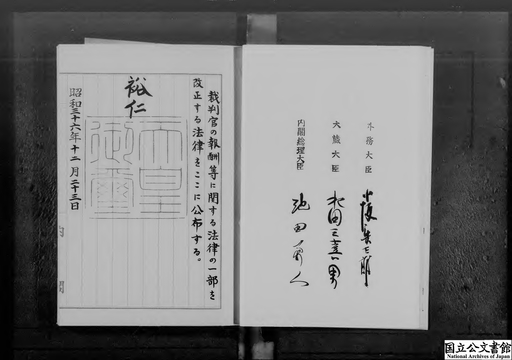 法務大臣
植木庚子郎
大蔵大臣
水田三喜男
内閣総理大臣
池田勇人
裁判官の報酬等に関する法律の一部を
改正する法律をここに公布する。
裕仁
天皇
御璽
昭和三十六年十二月二十三日
国立公文書館
National Archives of Japan